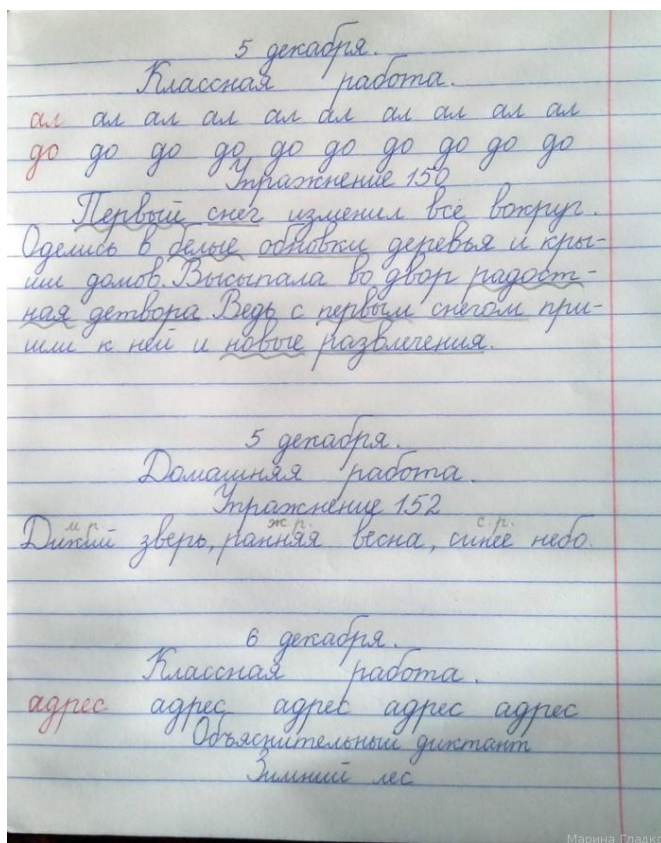 5 декабря.
Классная работа.
ал ал ал ал ал ал ал ал ал ал
до до до до до до до до до до
Упражнение 150
Первый снег изменил всё вокруг.
Оделись в белые обновки деревья и кры-
ши домов. Высыпала во двор радост-
ная детвора Ведь с первым снегом при-
шли к ней и новые развлечения.
5 декабря.
Домашняя работа.
Упражнение 152
м.р. ж.р. с.р.
Дикий зверь, ранняя весна, синее небо.
6 декабря.
Классная работа.
адрес адрес адрес адрес адрес
Объяснительный диктант
Зимний лес
Марина Гладко